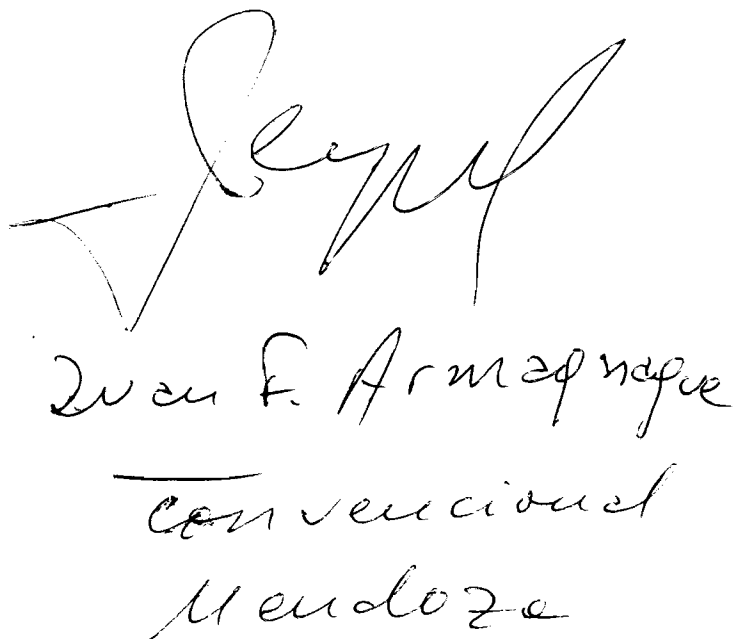 Juan F. Armagnague
Convencional
Mendoza